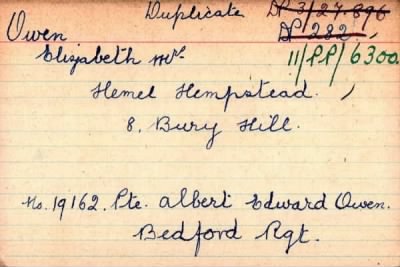 Duplicate DP 3/27.896
Owen DP 282
Elizabeth Mrs 11/PP/6300
Hemel Hempstead.
8. Bury Hill.
No. 19162. Pte. Albert Edward Owen.
Bedford Rgt.